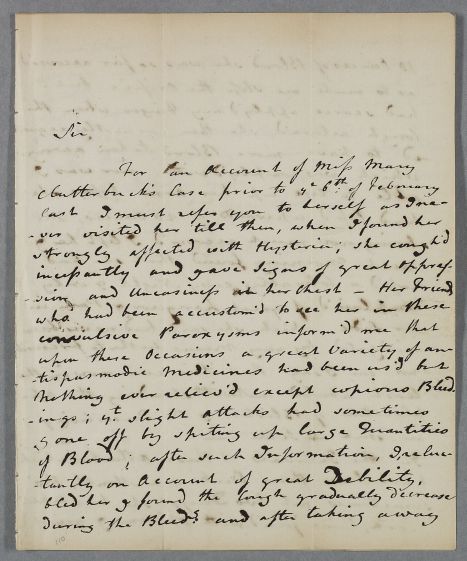 Sir
For an Account of Miss Mary
Clutterbuck's Case prior to ye 6th of February
last I must refer you to herself as I ne-
-ver visited her till then, when I found her
strongly affected with Hysteria; she cough'd
incessantly and gave Signs of great Oppres-
-sion and Uneasiness in her Chest - Her Friends
who had been accustom'd to see her in these
convulsive Paroxysms inform'd me that
upon these Occasions a great Variety of an-
-tispasmodic Medicines had been us'd but
Nothing ever reliev'd except copious Bleed-
-ings; yt slight attacks had sometimes
gone off by spiting up large Quantities
of Blood; after such Information, I reluc-
-tantly on Account of great Debility,
bled her & found the Cough gradually decrease
during the Bleedg and after taking away